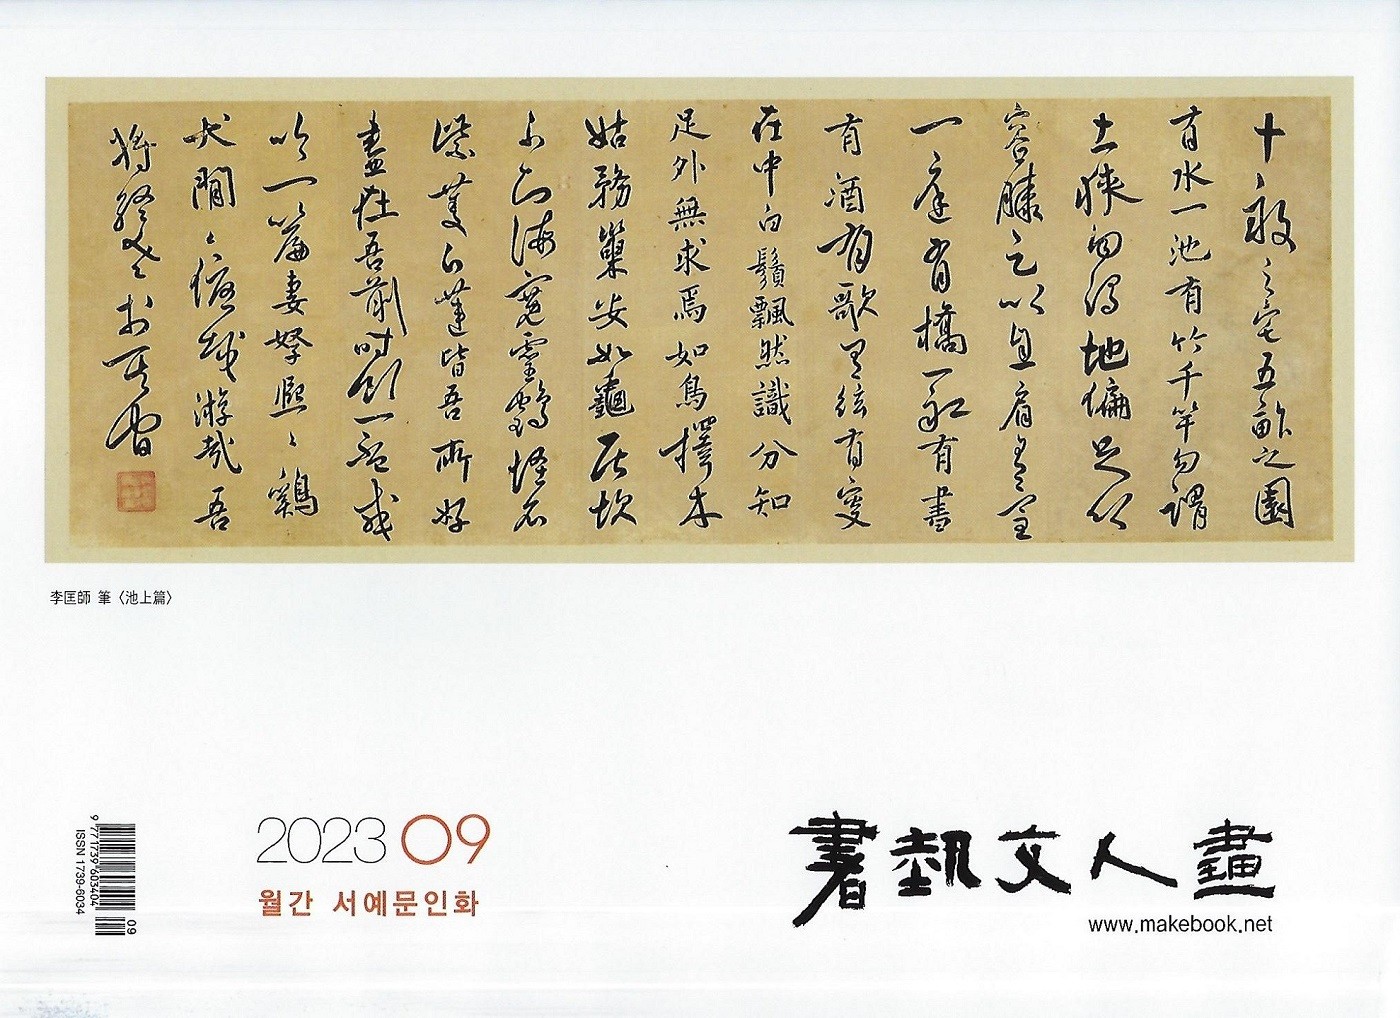 十畝之宅五畝之園
有水一池有竹千竿勿謂
土狹勿謂地偏足以
容膝足以息肩有堂
一庭有橋一船有書
有酒有歌有絃有叟
在中白鬚飄然識分知
足外無求焉如鳥擇木
姑務巢安如龜居坎
不知海寬靈鶴怪石
紫菱白蓮皆吾所好
盡在吾前時飲一盃或
吟一篇妻孥熙々鷄
犬閒々優哉游哉吾
將終老於其間
李匡師 筆〈池上篇〉
2023 09
월간 서예문인화
書藝文人畵
www.makebook.net
9 771739 603404
09
ISSN 1739-6034